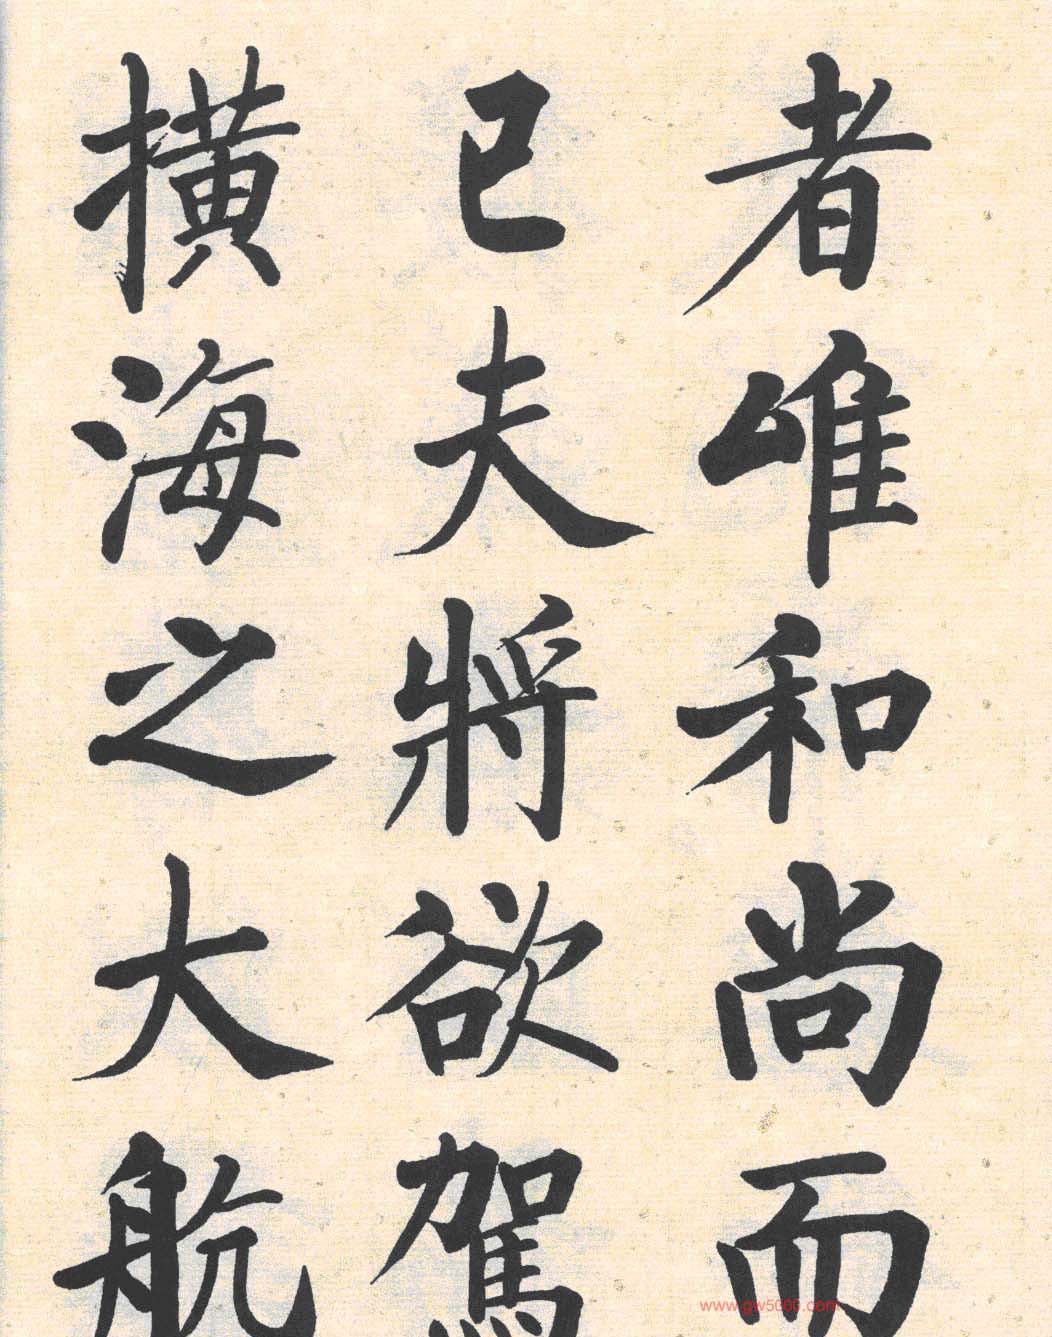 者唯和尚而
已夫將欲駕
橫海之大航
www.gw5000.com